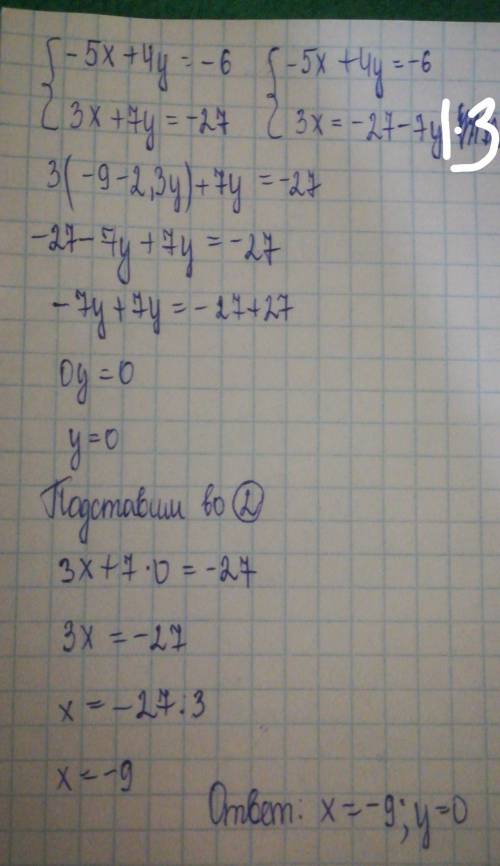 -5x+4y=-6 -5x+4y=-6
3x+7y=-27 3x=-27-7y |:3
3(-9-2,3y)+7y=-27
-27-7y+7y=-27
-7y+7y=-27+27
0y=0
y=0
Подставим во ②
3x+7·0=-27
3x=-27
x=-27:3
x=-9
Ответ: x=-9; y=0